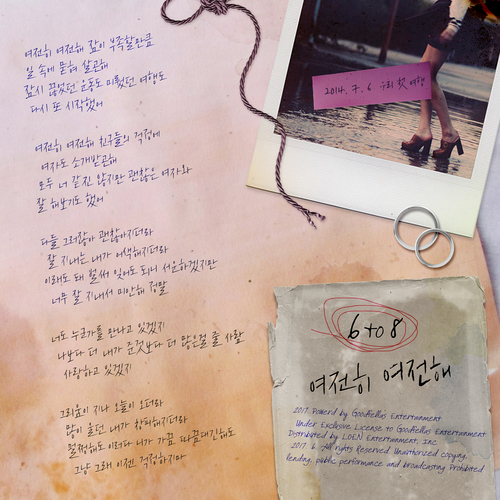 여전히 여전해 잠이 부족할만큼
일 속에 묻혀 살곤해
잠시 끊었던 운동도 미뤘던 여행도
다시 또 시작했어
여전히 여전해 친구들의 걱정에
여자도 소개받곤해
모두 너 같진 않지만 괜찮은 여자와
잘 해보기도 했어
다들 그러잖아 괜찮아지더라
잘 지내는 내가 어색해지더라
이래도 돼 널 잊어도 되니 서운하겠지만
너무 잘 지내서 미안해 정말
너도 누군가를 만나고 있겠지
나보다 더 내가 준것보다 더 많은걸 줄 사람
사랑하고 있겠지
그리움이 지나 오늘이 오더라
많이 울던 내가 창피해지더라
멀쩡해도 이러다 니가 가끔 따끔대긴해도
그냥 그래 이젠 걱정하지마
2014. 7. 6 우리 첫 여행
6 to 8
여전히 여전해
2017. Powered by Goodfellas Entertainment
Under Exclusive License to Goodfellas Entertainment
Distributed by LOEN Entertainment, Inc
2017. 6. All rights Reserved. Unauthorized copying,
lending, public performance and broadcasting Prohibited